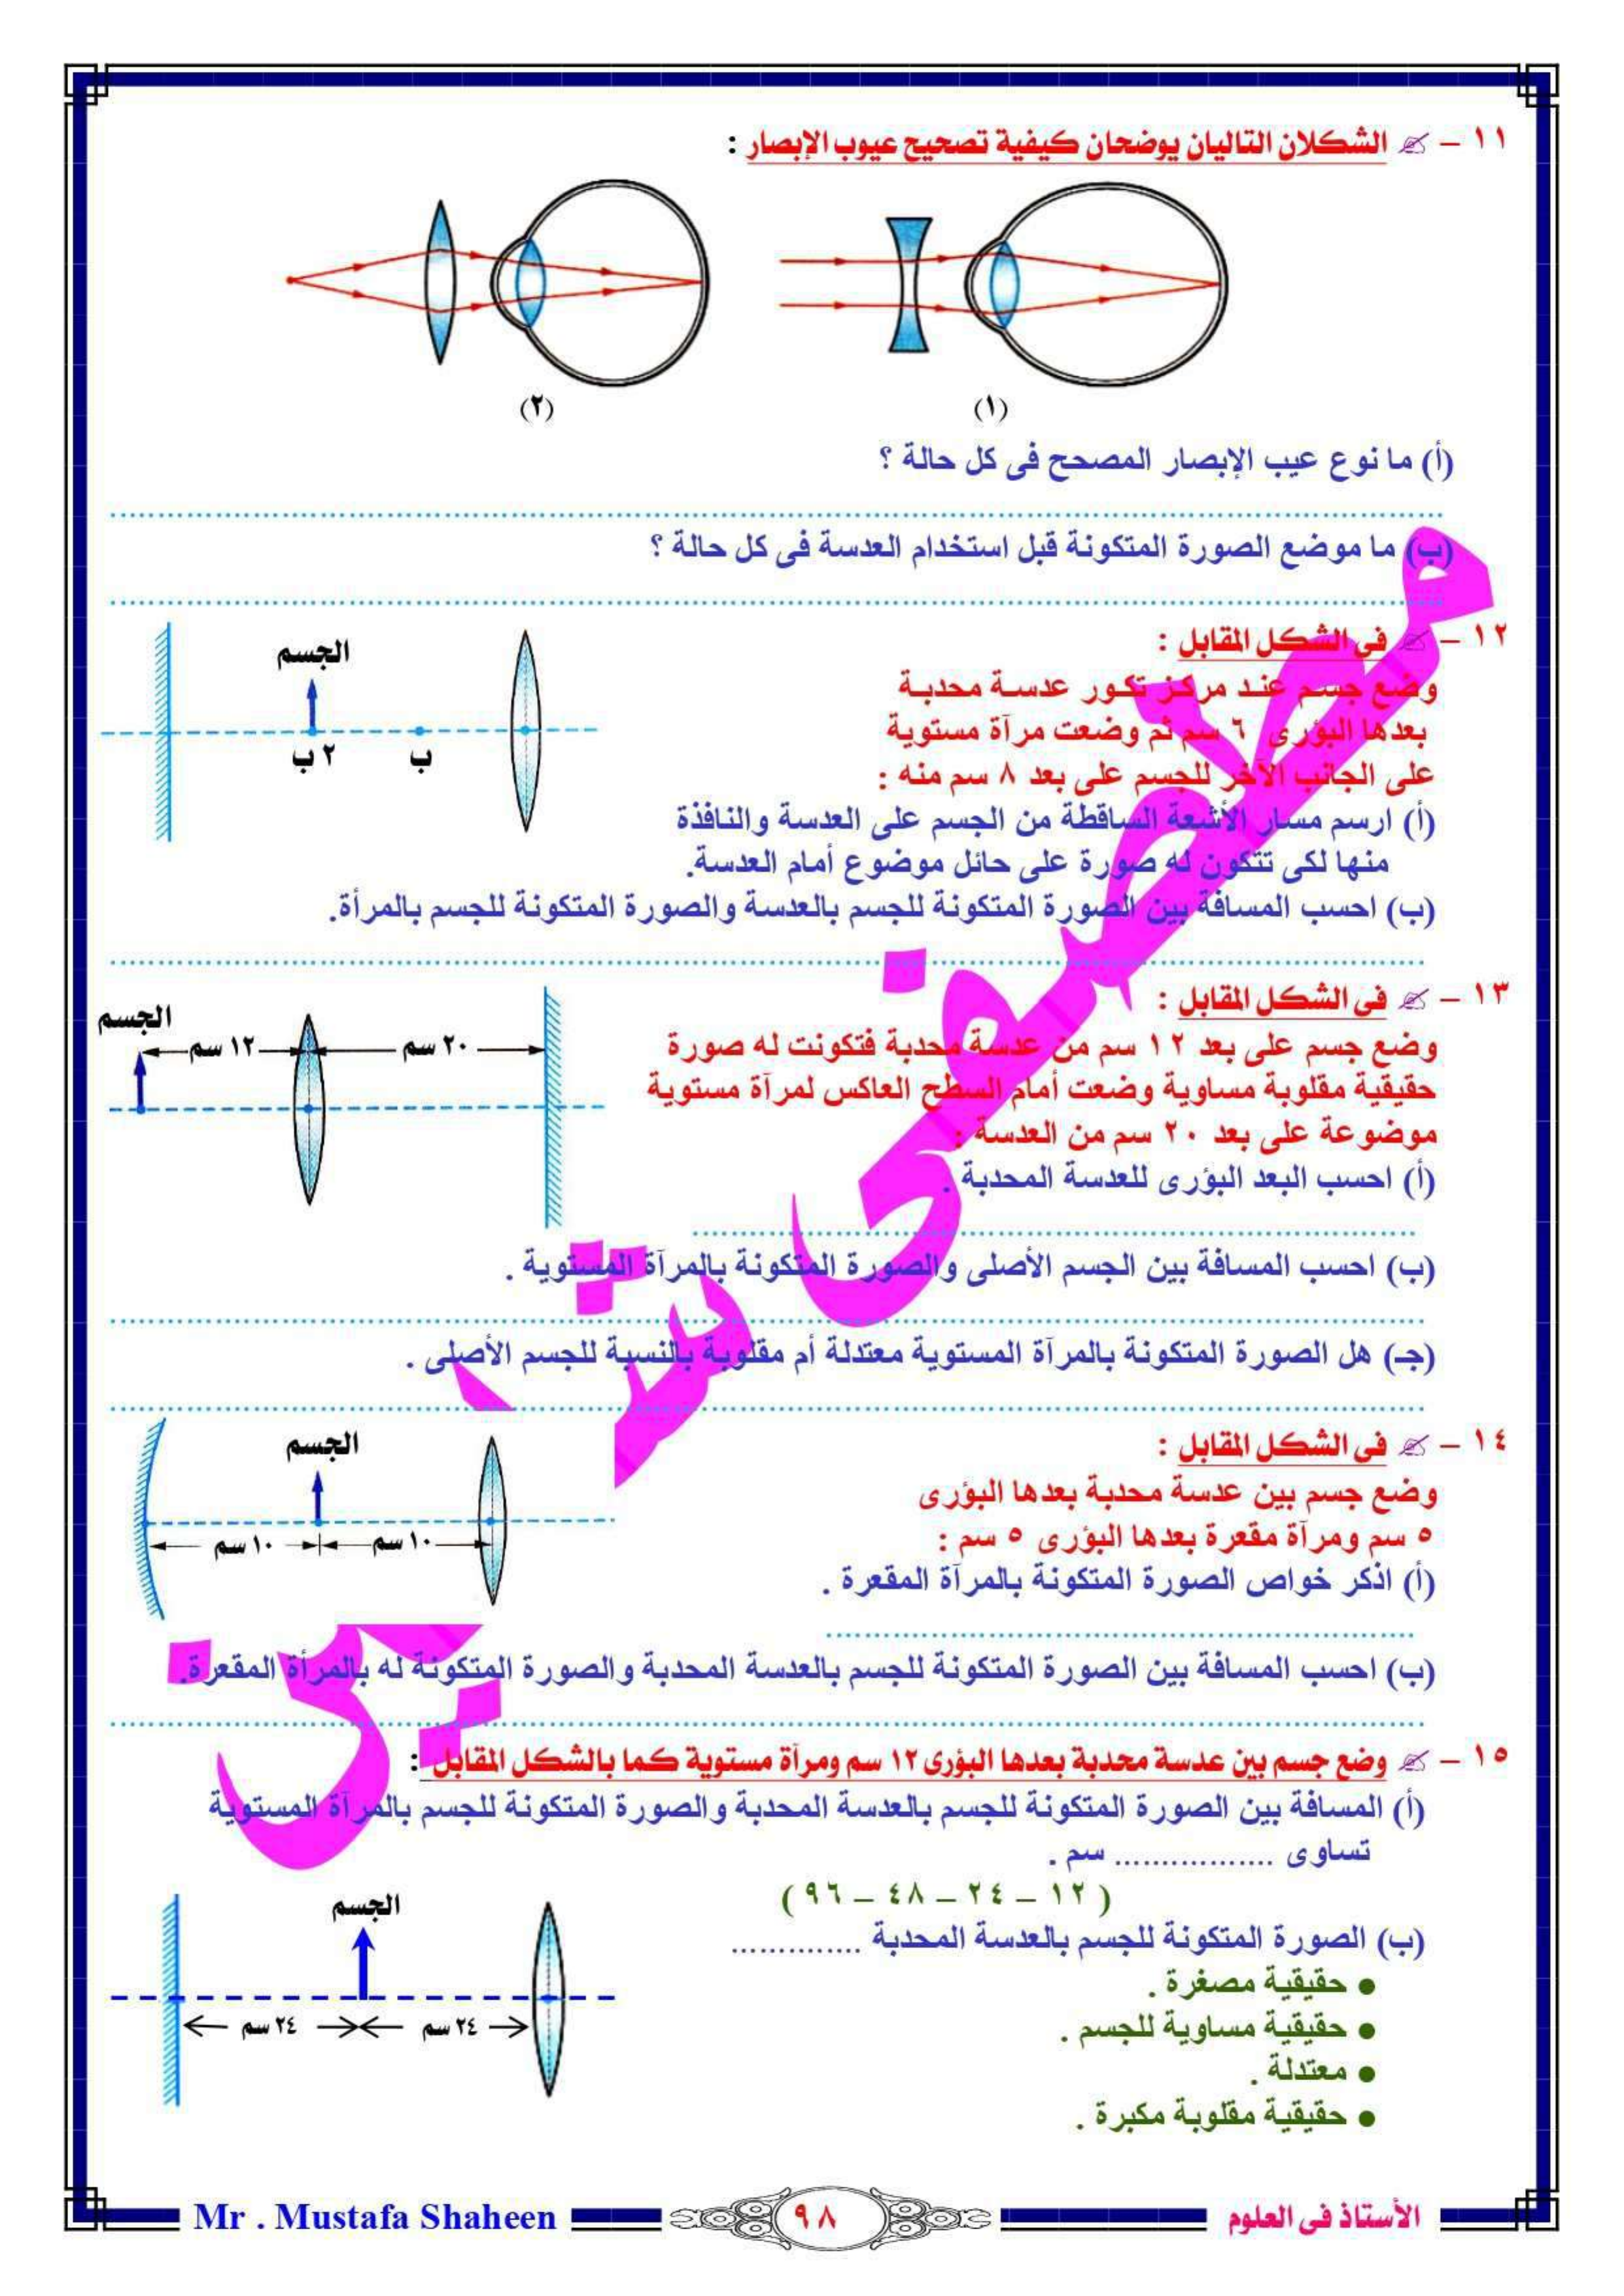 ١١ – الشكلان التاليان يوضحان كيفية تصحيح عيوب الإبصار :
(١)
(٢)
(أ) ما نوع عيب الإبصار المصحح فى كل حالة ؟
(ب) ما موضع الصورة المتكونة قبل استخدام العدسة فى كل حالة ؟
١٢ – فى الشكل المقابل :
وضع جسم عند مركز تكور عدسة محدبة
بعدها البؤرى ٦ سم ثم وضعت مرآة مستوية
على الجانب الآخر للجسم على بعد ٨ سم منه :
الجسم
٢ ب
ب
(أ) ارسم مسار الأشعة الساقطة من الجسم على العدسة والنافذة
منها لكى تتكون له صورة على حائل موضوع أمام العدسة.
(ب) احسب المسافة بين الصورة المتكونة للجسم بالعدسة والصورة المتكونة للجسم بالمرأة.
١٣ – فى الشكل المقابل :
وضع جسم على بعد ١٢ سم من عدسة محدبة فتكونت له صورة
حقيقية مقلوبة مساوية وضعت أمام السطح العاكس لمرآة مستوية
موضوعة على بعد ٢٠ سم من العدسة :
الجسم
١٢ سم
٢٠ سم
(أ) احسب البعد البؤرى للعدسة المحدبة .
(ب) احسب المسافة بين الجسم الأصلى والصورة المتكونة بالمرآة المستوية .
(جـ) هل الصورة المتكونة بالمرآة المستوية معتدلة أم مقلوبة بالنسبة للجسم الأصلى .
١٤ – فى الشكل المقابل :
وضع جسم بين عدسة محدبة بعدها البؤرى
٥ سم ومرآة مقعرة بعدها البؤرى ٥ سم :
الجسم
١٠ سم
١٠ سم
(أ) اذكر خواص الصورة المتكونة بالمرآة المقعرة .
(ب) احسب المسافة بين الصورة المتكونة للجسم بالعدسة المحدبة والصورة المتكونة له بالمرأة المقعرة.
١٥ – وضع جسم بين عدسة محدبة بعدها البؤرى ١٢ سم ومرآة مستوية كما بالشكل المقابل :
(أ) المسافة بين الصورة المتكونة للجسم بالعدسة المحدبة والصورة المتكونة للجسم بالمرآة المستوية
تساوى ................. سم .
( ١٢ – ٢٤ – ٤٨ – ٩٦ )
(ب) الصورة المتكونة للجسم بالعدسة المحدبة ..............
● حقيقية مصغرة .
● حقيقية مساوية للجسم .
● معتدلة .
● حقيقية مقلوبة مكبرة .
الجسم
٢٤ سم
٢٤ سم
مصطفى شاهين
الأستاذ فى العلوم
٩٨
Mr . Mustafa Shaheen